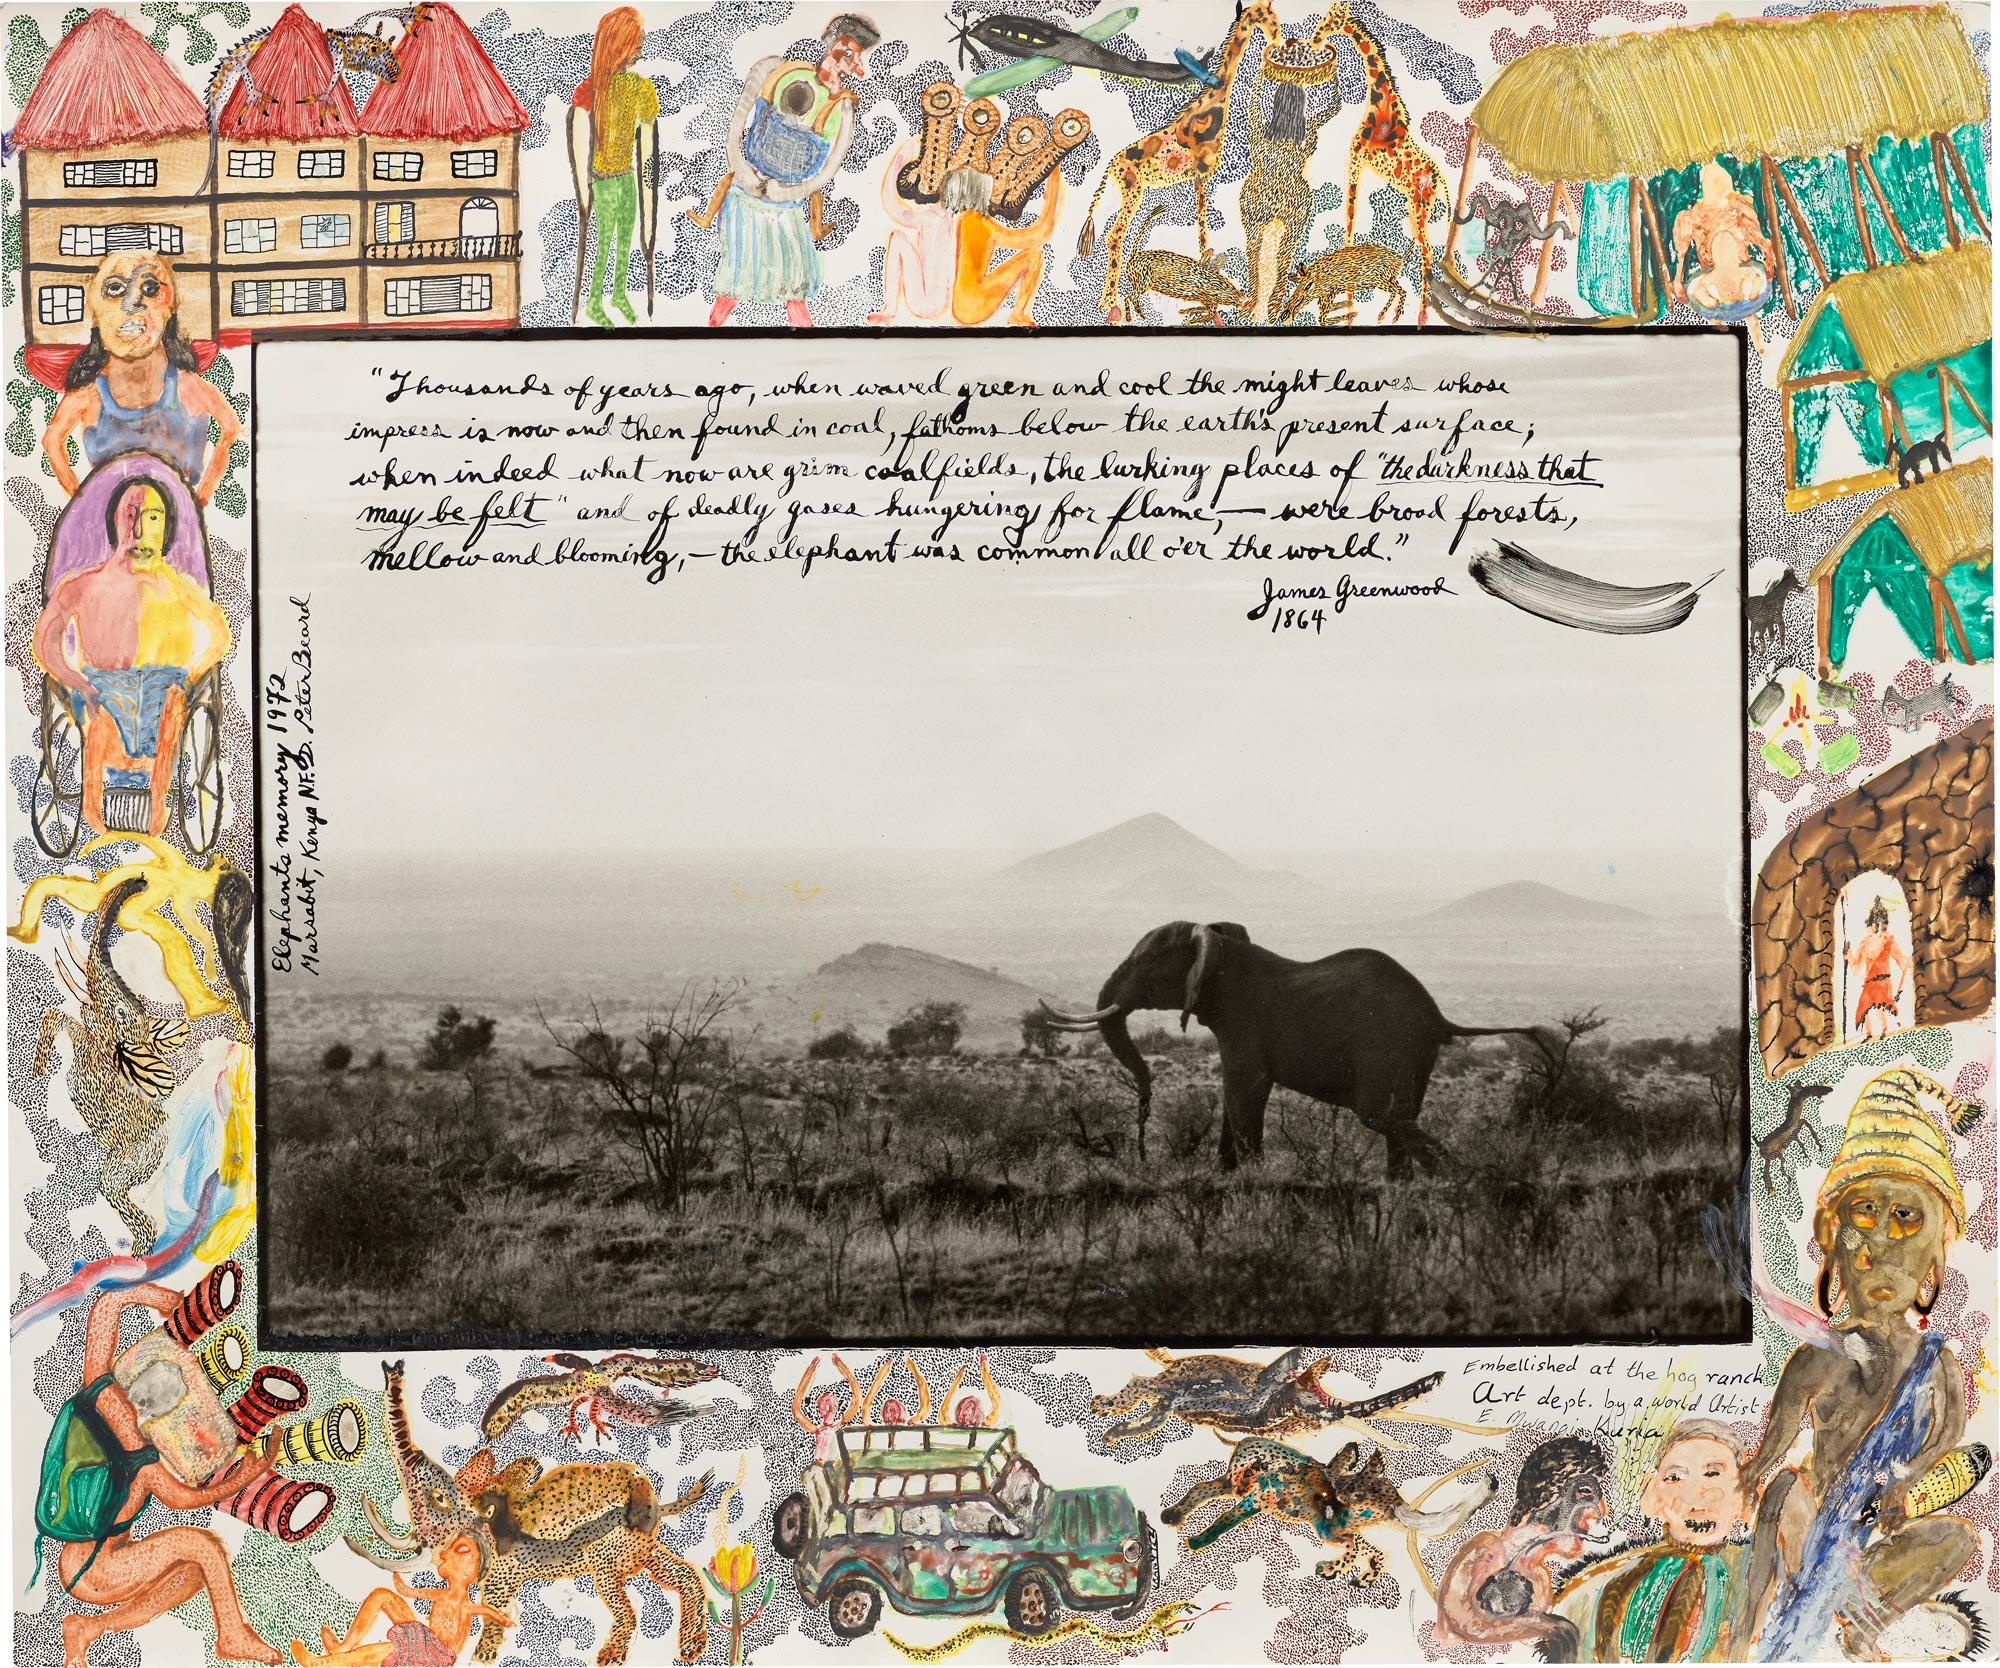 "Thousands of years ago, when waved green and cool the might leaves whose
impress is now and then found in coal, fathoms below the earth's present surface;
when indeed what now are grim coalfields, the lurking places of "the darkness that
may be felt" and of deadly gases hungering for flame, — were broad forests,
mellow and blooming, — the elephant was common all o'er the world."
James Greenwood
1864
Elephants memory 1972
Marsabit, Kenya N.F.D. Peter Beard
Embellished at the hog ranch
Art dept. by a world Artist
E. Mwangi Kuria